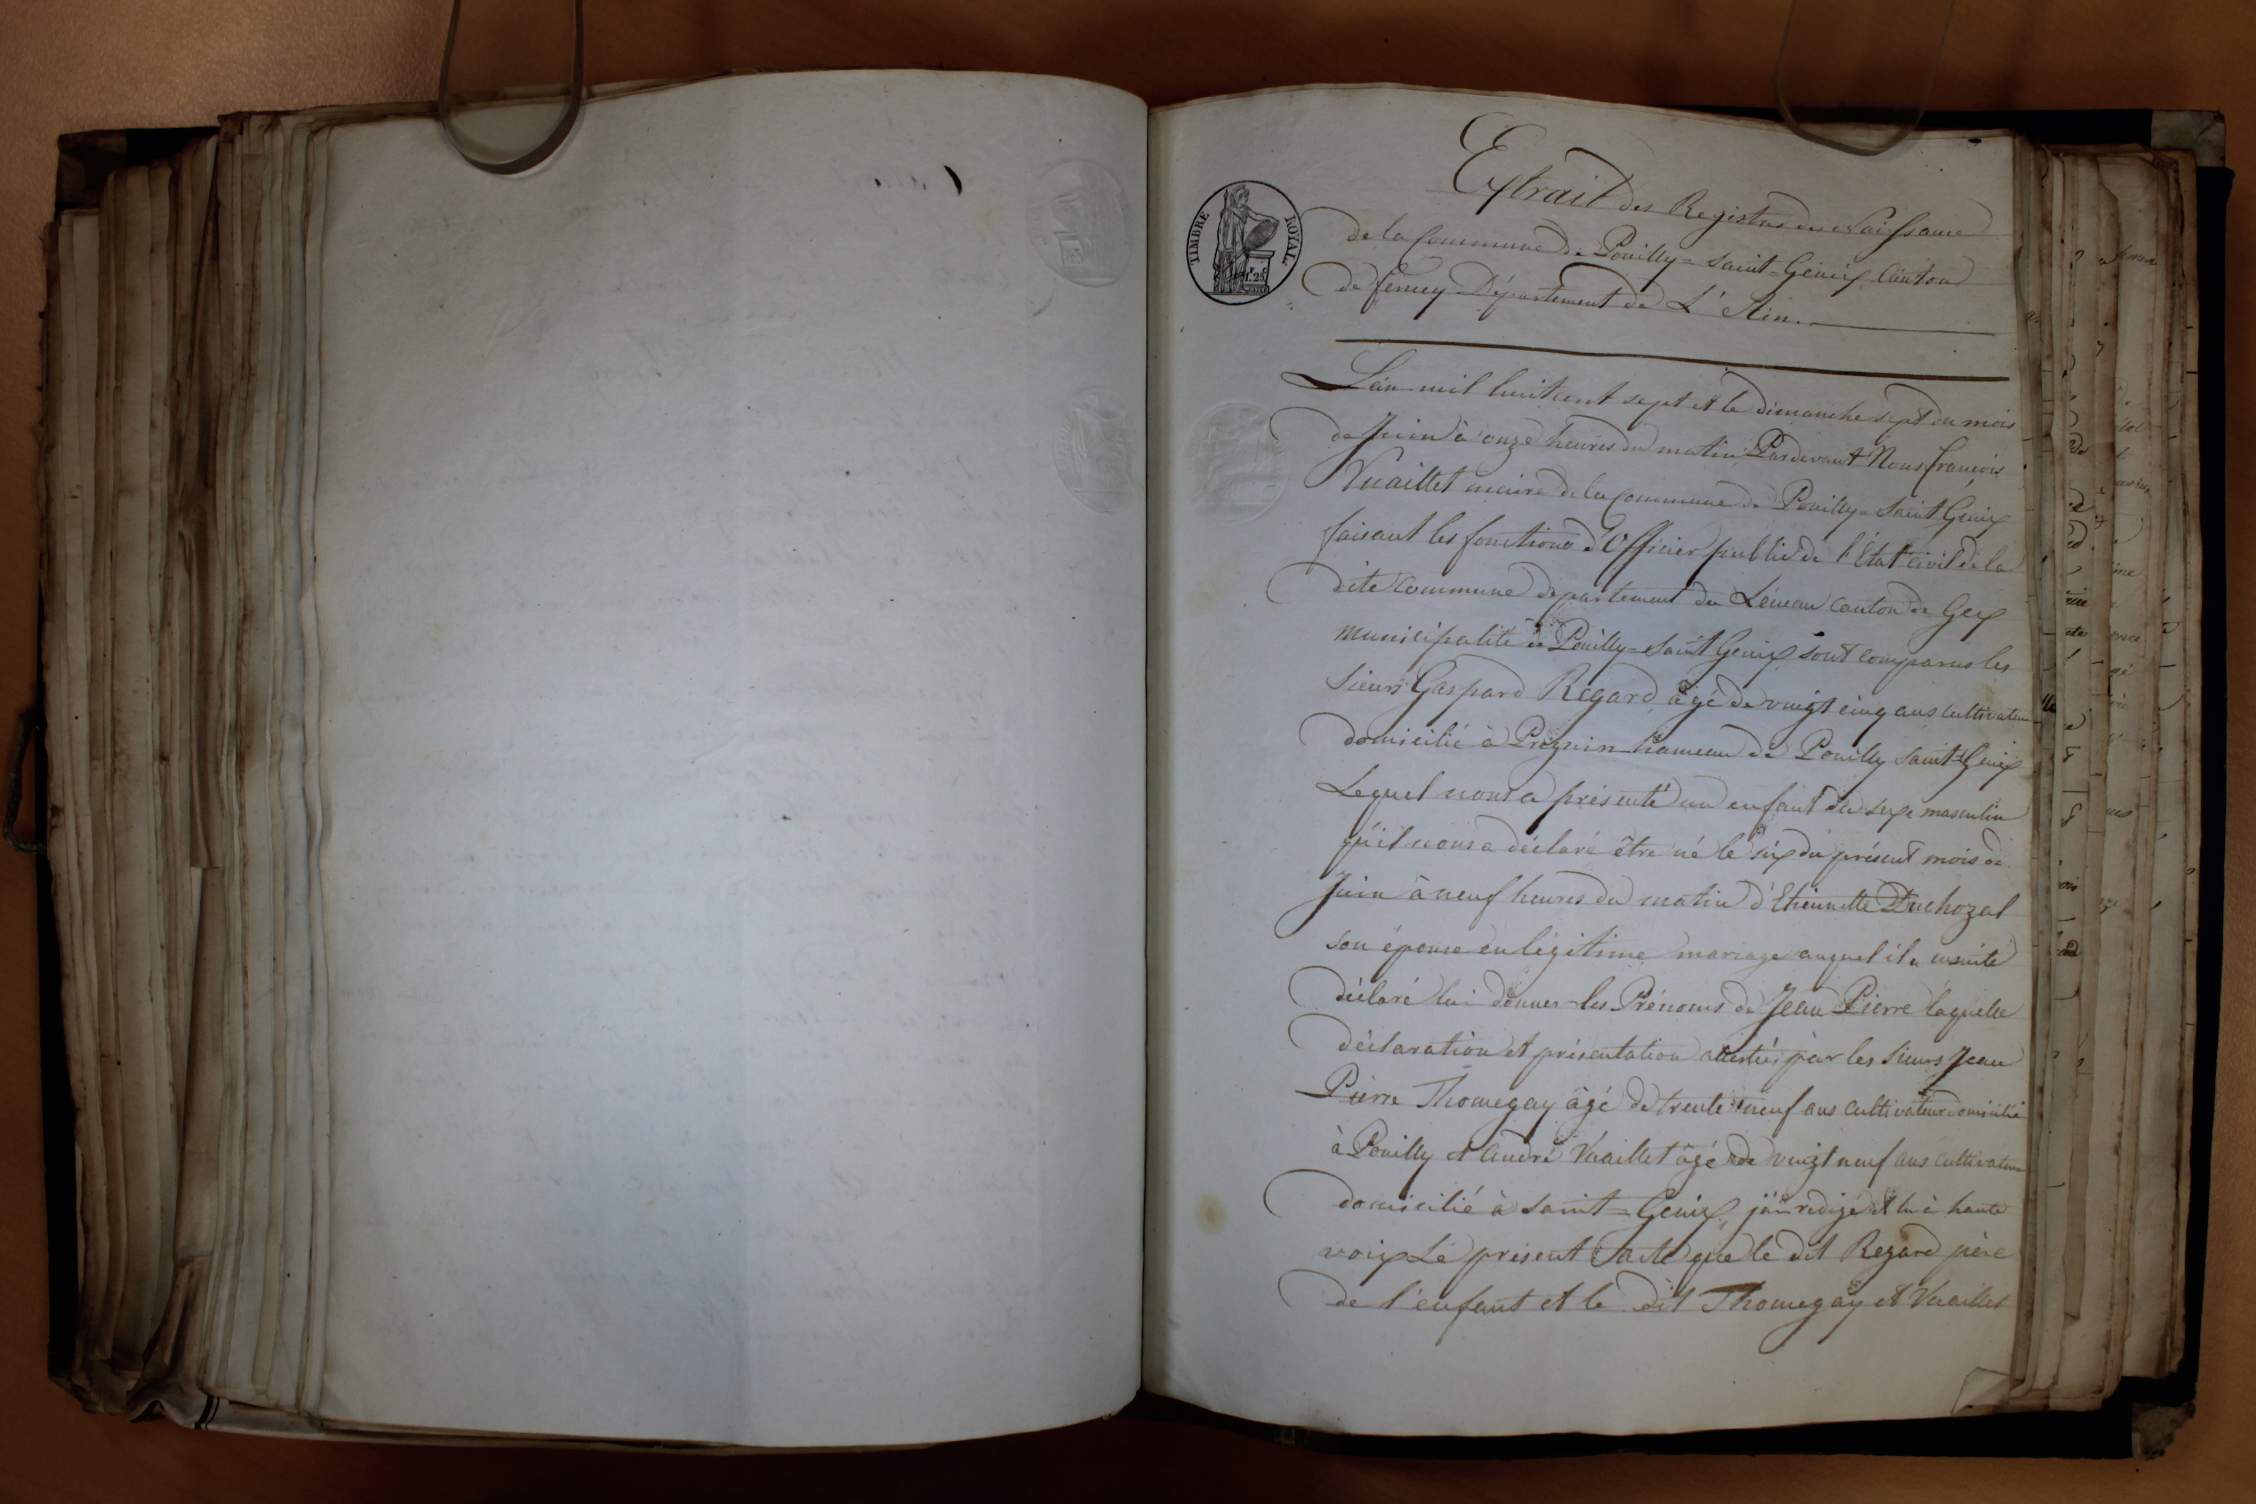 TIMBRE ROYAL
1.25
Extrait des Registres des Naissance
de la Commune de Pouilly=saint=Genix Canton
de ferney Département de L'Ain.
L'an mil huit cent sept et le dimanche sept du mois
de Juin à onze heures du matin Pardevant Nous françois
Vuaillet maire de la Commune de Pouilly=Saint Genix
faisant les fonctions d'Officier public de l'Etat civil de la
dite Commune departement du Léman canton de Gex
municipalité de Pouilly=Saint Genix sont comparus les
Sieurs Gaspard Regard âgé de vingt cinq ans cultivateur
domicilié à Prégnin hameau de Pouilly saint=Genix
Lequel nous a présenté un enfant du sexe masculin
qu'il nous a déclaré être né le six du présent mois de
Juin à neuf heures du matin d'Etiennette Duchozal
son épouse en légitime mariage auquel il a ensuite
déclaré lui donner les Prénoms de Jean Pierre laquelle
déclaration et présentation attestées par les Sieurs Jean
Pierre Thomegay âgé de trente neuf ans cultivateur domicilié
à Pouilly et André Vuaillet âgé de vingt neuf ans cultivateur
domicilié à saint=Genix, j'ai rédigé et lu à haute
voix Le présent acte que le dit Regard père
de l'enfant et le dit Thomegay et Vuaillet